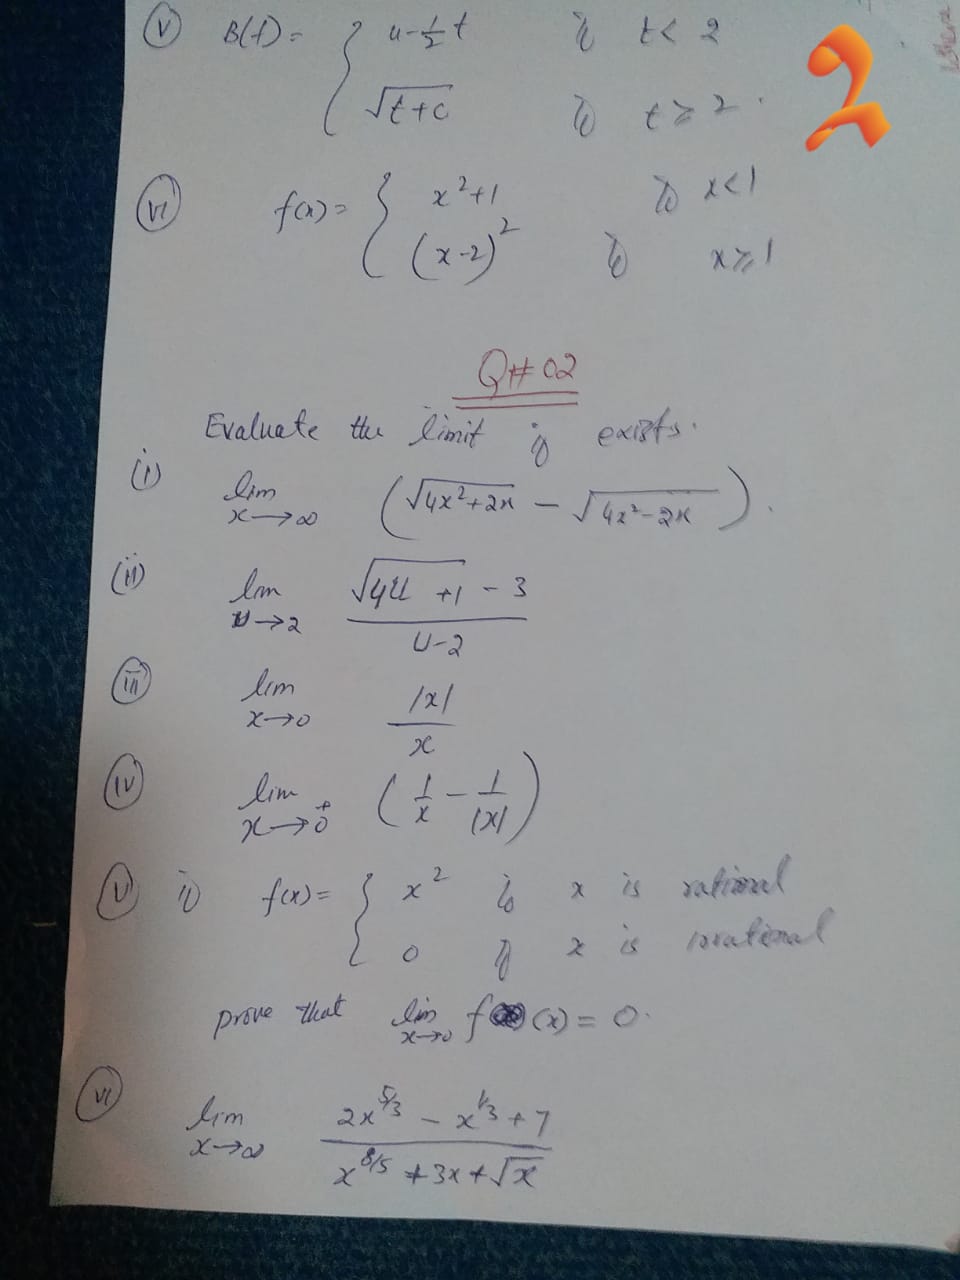 (v) B(t) = { 4 - 1/2 t if t < 2
√(t+c) if t ≥ 2.
2
(vi) f(x) = { x² + 1 if x < 1
(x-2)² if x ≥ 1
Q# 02
Evaluate the limit if exists.
(i) lim x→∞ ( √(4x²+2x) - √(4x²-2x) ).
(ii) lim u→2 (√(4u+1) - 3) / (u-2)
(iii) lim x→0 |x| / x
(iv) lim x→0⁺ ( 1/x - 1/|x| )
(v) if f(x) = { x² if x is rational
0 if x is irrational
prove that lim x→0 f(x) = 0.
(vi) lim x→∞ (2x^(5/3) - x^(1/3) + 7) / (x^(8/5) + 3x + √x)